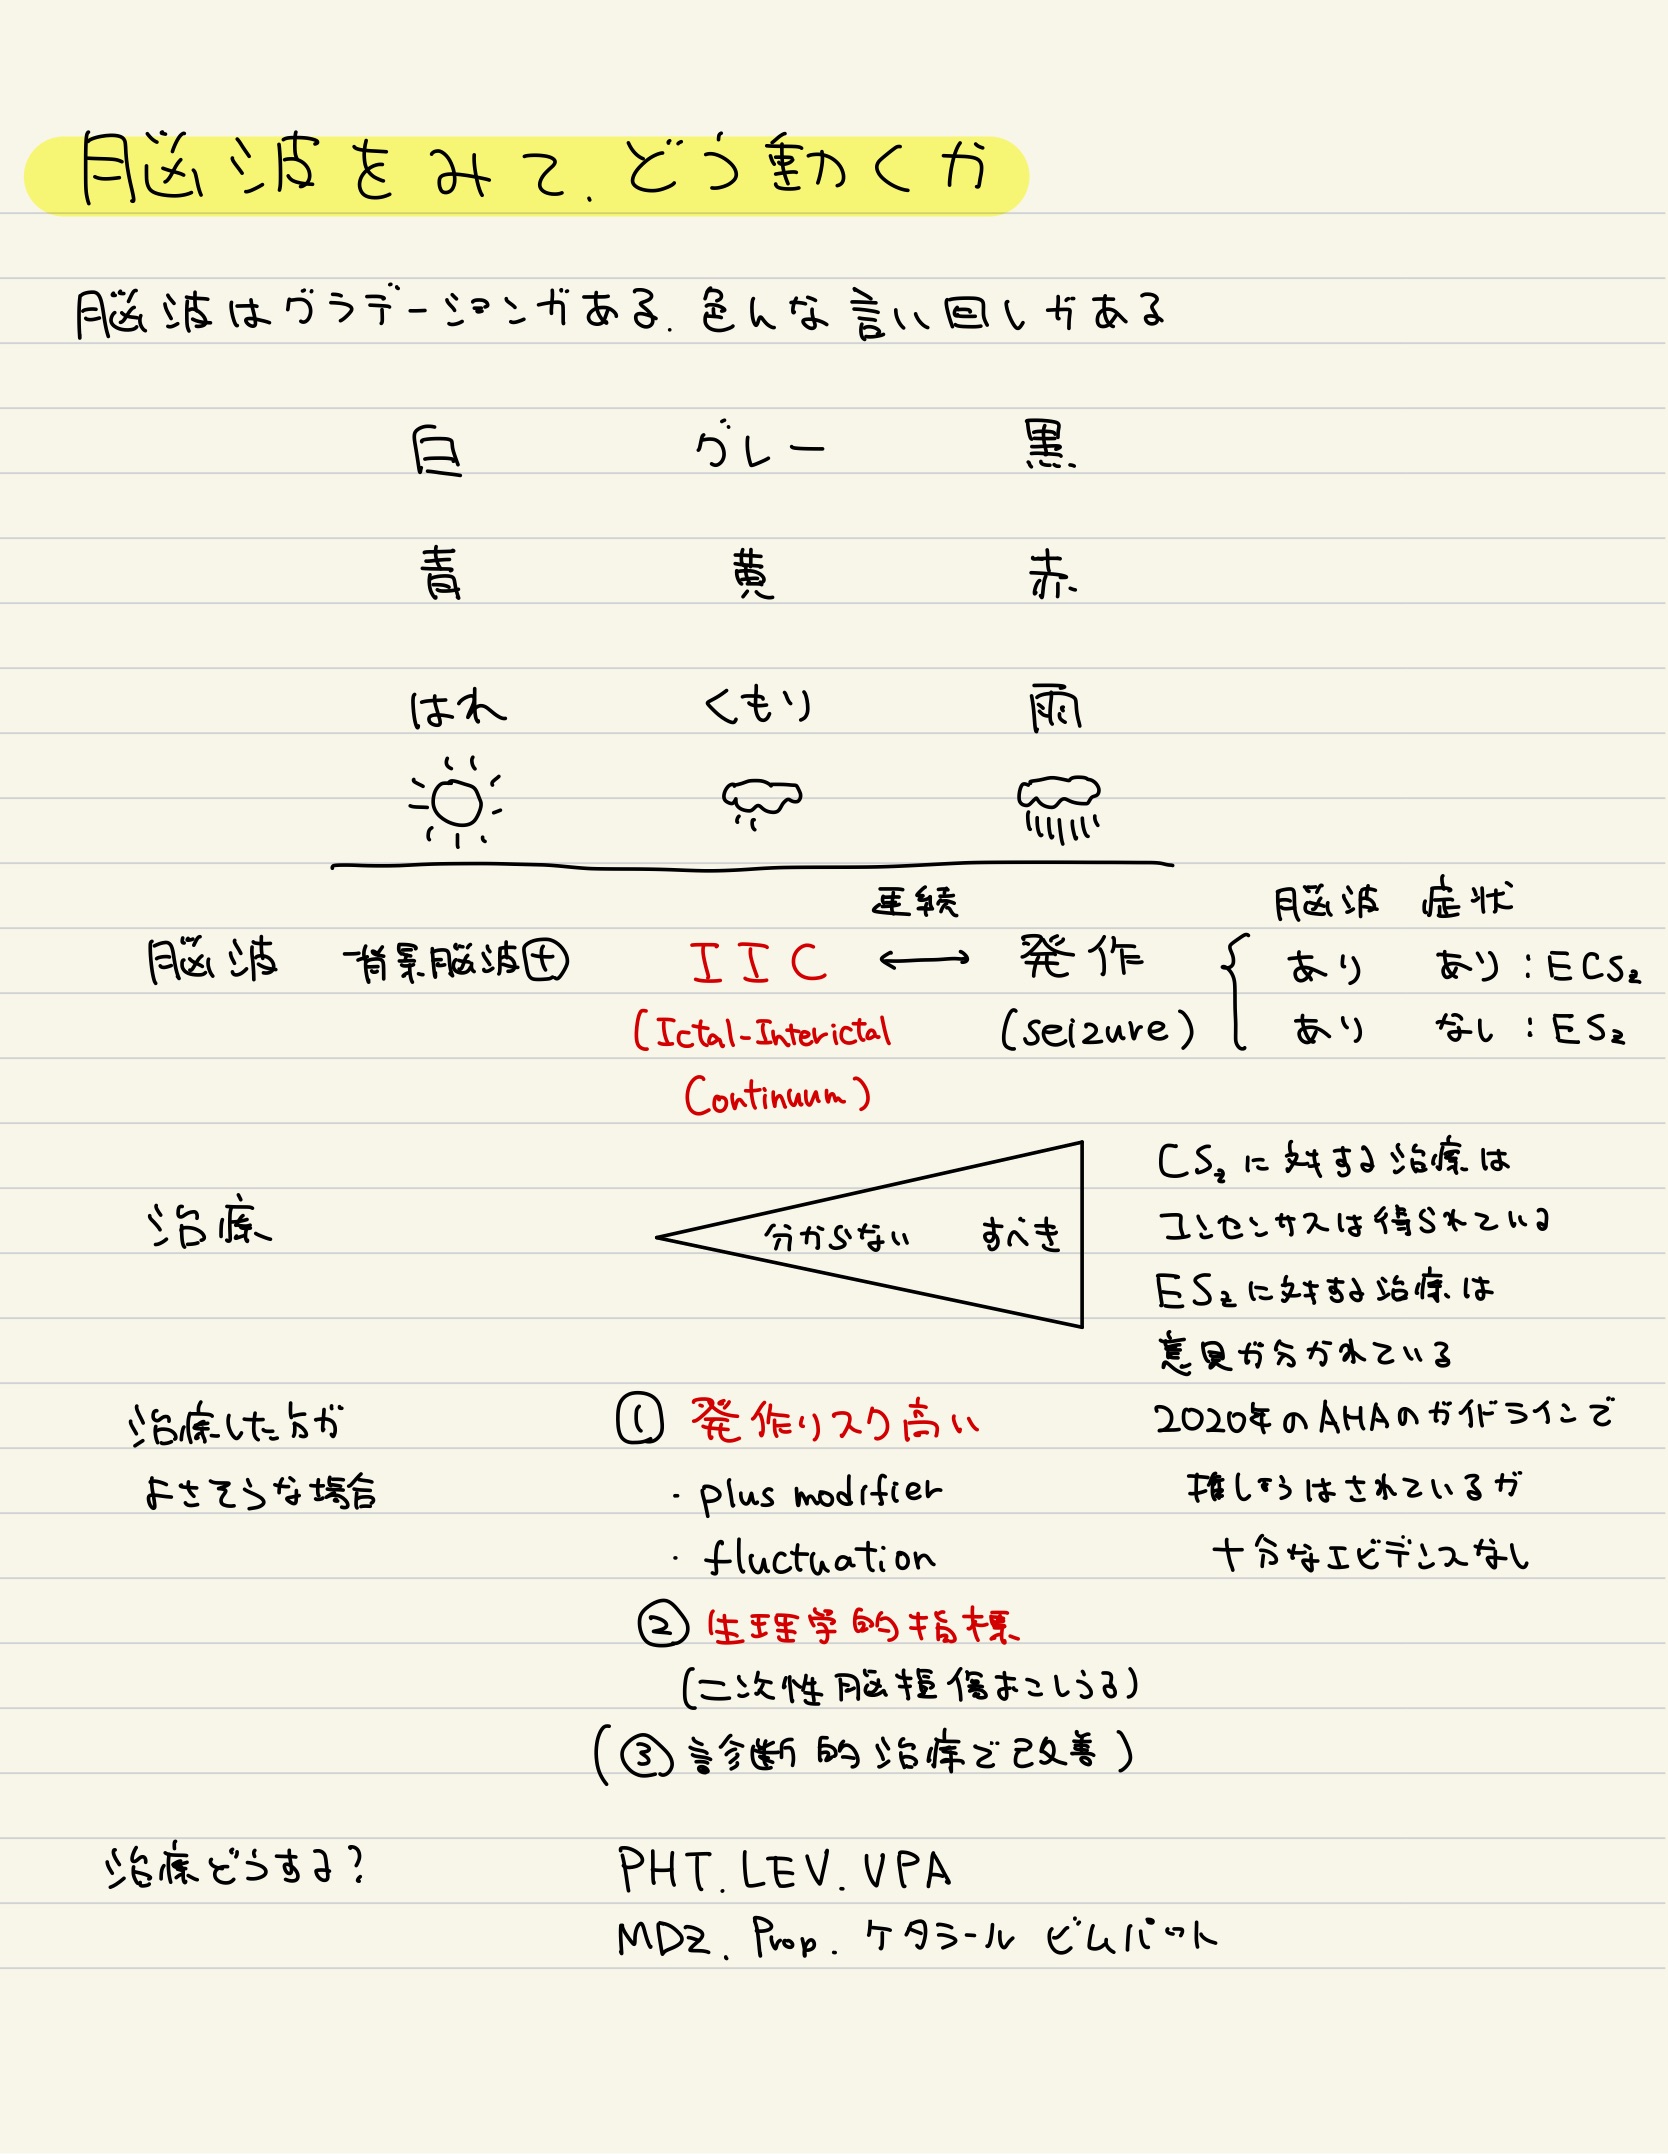 脳波をみて.どう動くか
脳波はグラデーションがある.色んな言い回しがある
白 グレー 黒
青 黄 赤
はれ くもり 雨
連続 脳波 症状
脳波 背景脳波⊕ IIC ⟷ 発作 { あり あり:ECSz
(Ictal-Interictal (seizure) あり なし:ESz
Continuum)
CSzに対する治療は
治療 分からない すべき コンセンサスは得られている
ESzに対する治療は
意見が分かれている
治療した方が ① 発作リスク高い 2020年のAHAのガイドラインで
よさそうな場合 ・plus modifier 推しょうはされているが
・fluctuation 十分なエビデンスなし
② 生理学的指標
(二次性脳損傷おこしうる)
(③ 診断的治療で改善)
治療どうする? PHT.LEV.VPA
MDZ.Prop.ケタラール ビムパット